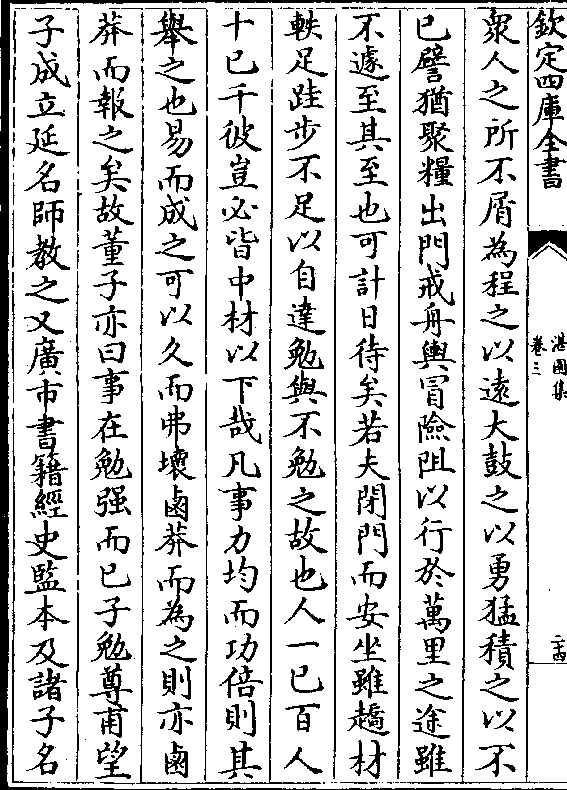 欽定四庫全書
湛園集
卷三
二十四
衆人之所不屑為程之以遠大鼓之以勇猛積之以不
已譬猶聚糧出門戒舟輿冒險阻以行於萬里之途雖
不遽至其至也可計日待矣若夫閉門而安坐雖趫材
軼足跬步不足以自達勉與不勉之故也人一已百人
十已千彼豈必皆中材以下哉凡事力均而功倍則其
舉之也易而成之可以久而弗壞鹵莽而為之則亦鹵
莽而報之矣故董子亦曰事在勉强而已子勉尊甫望
子成立延名師教之又廣市書籍經史監本及諸子名